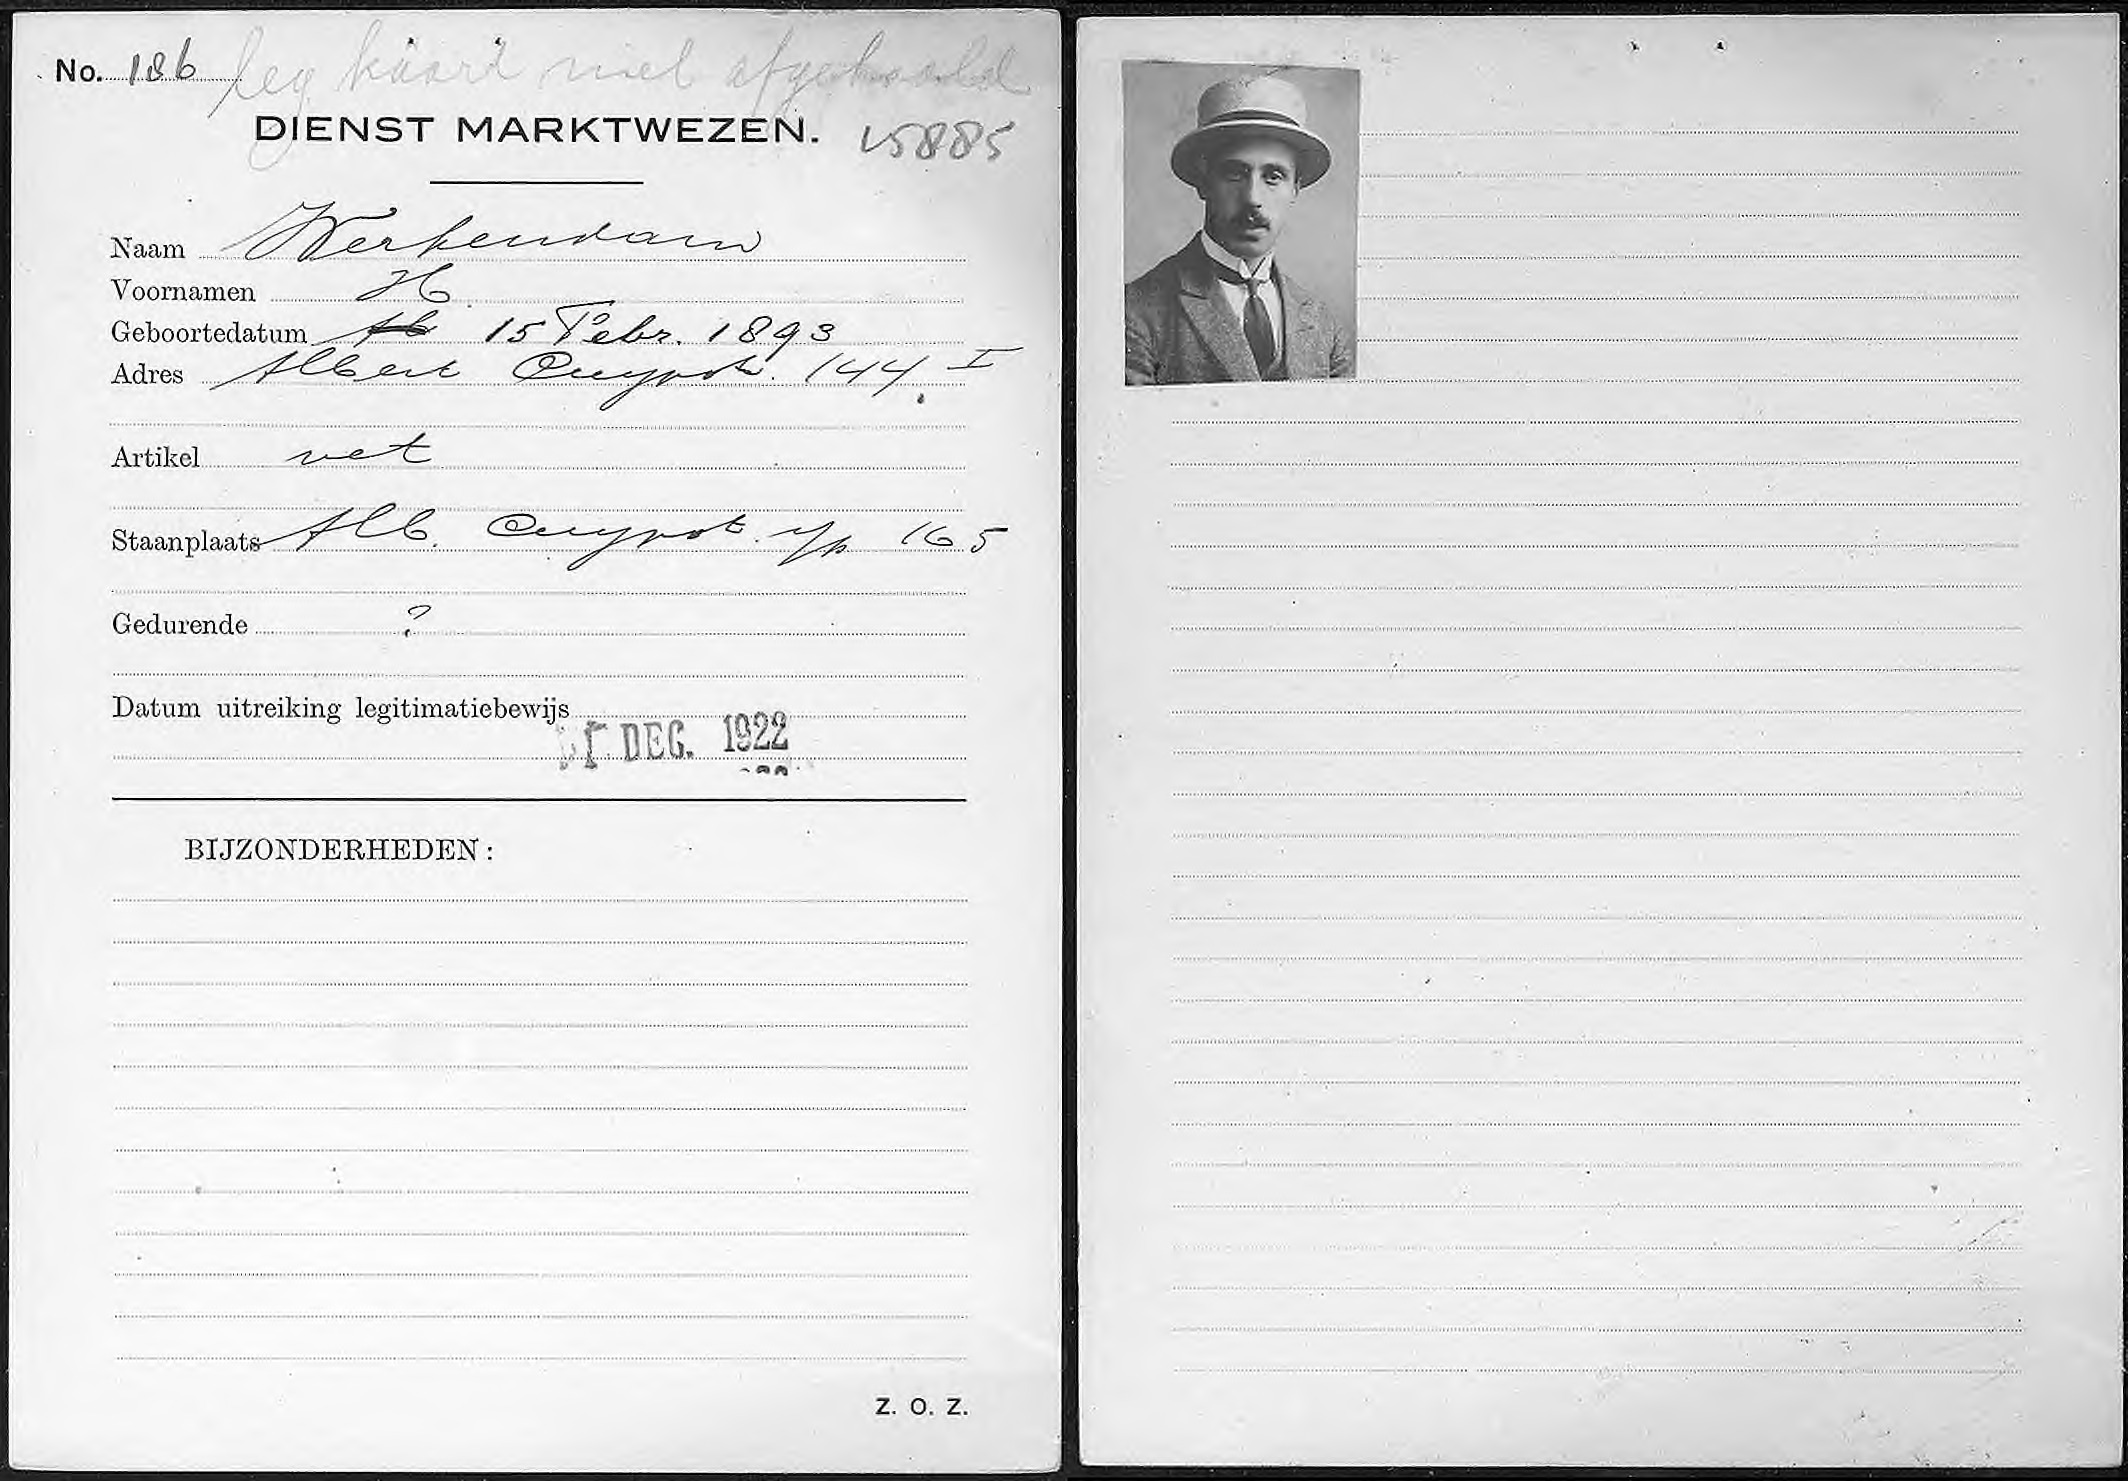 No. 186 leg kaart niet afgehaald
DIENST MARKTWEZEN. 15885
Naam Werkendam
Voornamen H.
Geboortedatum 15 Febr. 1893
Adres Albert Cuypstr. 144 I
Artikel vet
Staanplaats Alb. Cuypst. 165
Gedurende ?
Datum uitreiking legitimatiebewijs
1 DEC. 1922
BIJZONDERHEDEN:
Z. O. Z.